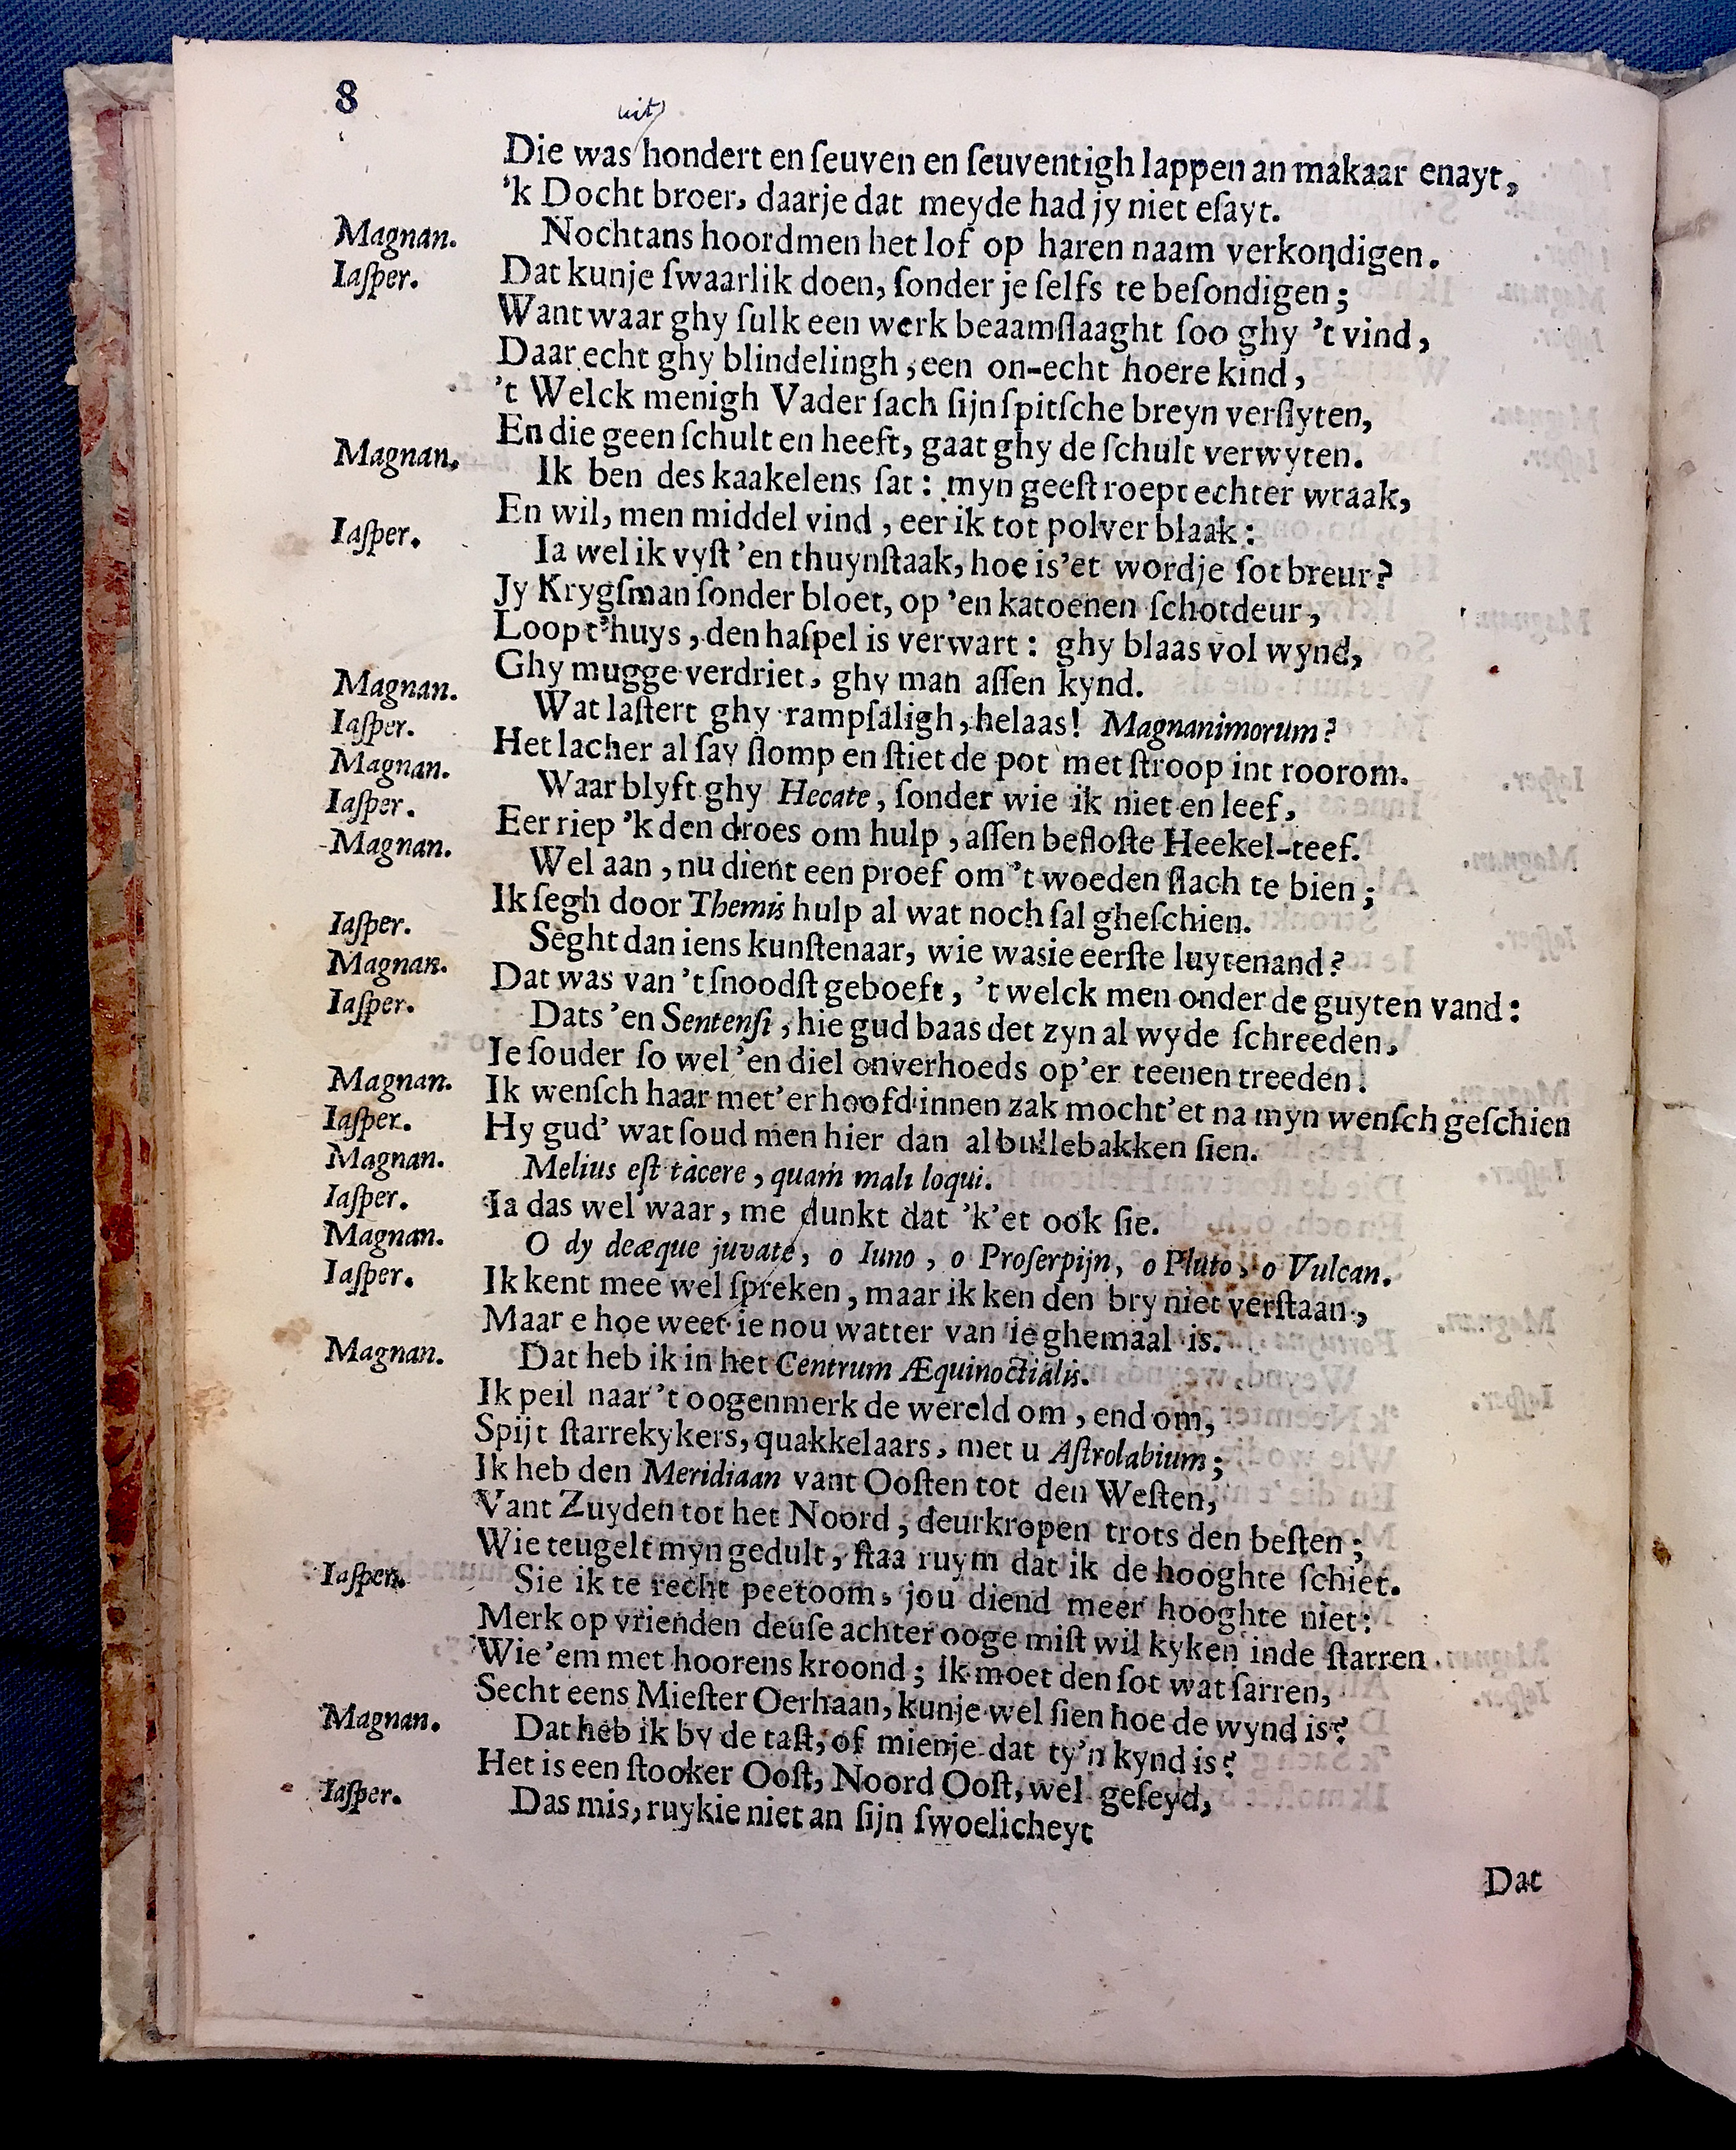 8
uit
Die was hondert en ſeuven en ſeuventigh lappen an makaar enayt,
'k Docht broer, daarje dat meyde had jy niet eſayt.
Magnan. Nochtans hoordmen het lof op haren naam verkondigen.
Iaſper. Dat kunje ſwaarlik doen, ſonder je ſelfs te beſondigen;
Want waar ghy ſulk een werk beaamſlaaght ſoo ghy 't vind,
Daar echt ghy blindelingh, een on-echt hoere kind,
't Welck menigh Vader ſach ſijn ſpitſche breyn verſlyten,
En die geen ſchult en heeft, gaat ghy de ſchult verwyten.
Magnan. Ik ben des kaakelens ſat: myn geeſt roept echter wraak,
En wil, men middel vind, eer ik tot polver blaak:
Iaſper. Ia wel ik vyſt 'en thuynſtaak, hoe is'et wordje ſot breur?
Jy Krygſman ſonder bloet, op 'en katoenen ſchotdeur,
Loop t'huys, den haſpel is verwart: ghy blaas vol wynd,
Ghy mugge verdriet, ghy man aſſen kynd.
Magnan. Wat laſtert ghy rampſaligh, helaas! Magnanimorum?
Iaſper. Het lacher al ſay ſlomp en ſtiet de pot met ſtroop int roorom.
Magnan. Waar blyft ghy Hecate, ſonder wie ik niet en leef,
Iaſper. Eer riep 'k den droes om hulp, aſſen befloſte Heekel-teef.
Magnan. Wel aan, nu dient een proef om 't woeden ſlach te bien;
Ik ſegh door Themis hulp al wat noch ſal gheſchien.
Iaſper. Seght dan iens kunſtenaar, wie wasie eerſte luytenand?
Magnan. Dat was van 't ſnoodſt geboeft, 't welck men onder de guyten vand:
Iaſper. Dats 'en Sentenſi, hie gud baas det zyn al wyde ſchreeden,
Ie ſouder ſo wel 'en diel onverhoeds op'er teenen treeden!
Magnan. Ik wenſch haar met'er hoofd innen zak mocht'et na myn wenſch geſchien
Iaſper. Hy gud' wat ſoud men hier dan al bullebakken ſien.
Magnan. Melius eſt tacere, quam mali loqui.
Iaſper. Ia das wel waar, me dunkt dat 'k'et ook ſie.
Magnan. O dy deæque juvate, o Iuno, o Proſerpijn, o Pluto, o Vulcan.
Iaſper. Ik kent mee wel ſpreken, maar ik ken den bry niet verſtaan,
Maar e hoe weet ie nou watter van ie ghemaal is.
Magnan. Dat heb ik in het Centrum Æquinoctialis.
Ik peil naar 't oogenmerk de wereld om, end om,
Spijt ſtarrekykers, quakkelaars, met u Aſtrolabium;
Ik heb den Meridiaan vant Ooſten tot den Weſten,
Vant Zuyden tot het Noord, deurkropen trots den beſten;
Wie teugelt myn gedult, ſtaa ruym dat ik de hooghte ſchiet.
Iaſper. Sie ik te recht peetoom, jou diend meer hooghte niet:
Merk op vrienden deuſe achter ooge miſt wil kyken inde ſtarren
Wie 'em met hoorens kroond; ik moet den ſot wat ſarren,
Secht eens Mieſter Oerhaan, kunje wel ſien hoe de wynd is?
Magnan. Dat heb ik by de taſt, of mienje dat ty'n kynd is?
Het is een ſtooker Ooſt, Noord Ooſt, wel geſeyd,
Iaſper. Das mis, ruykie niet an ſijn ſwoelicheyt
Dat